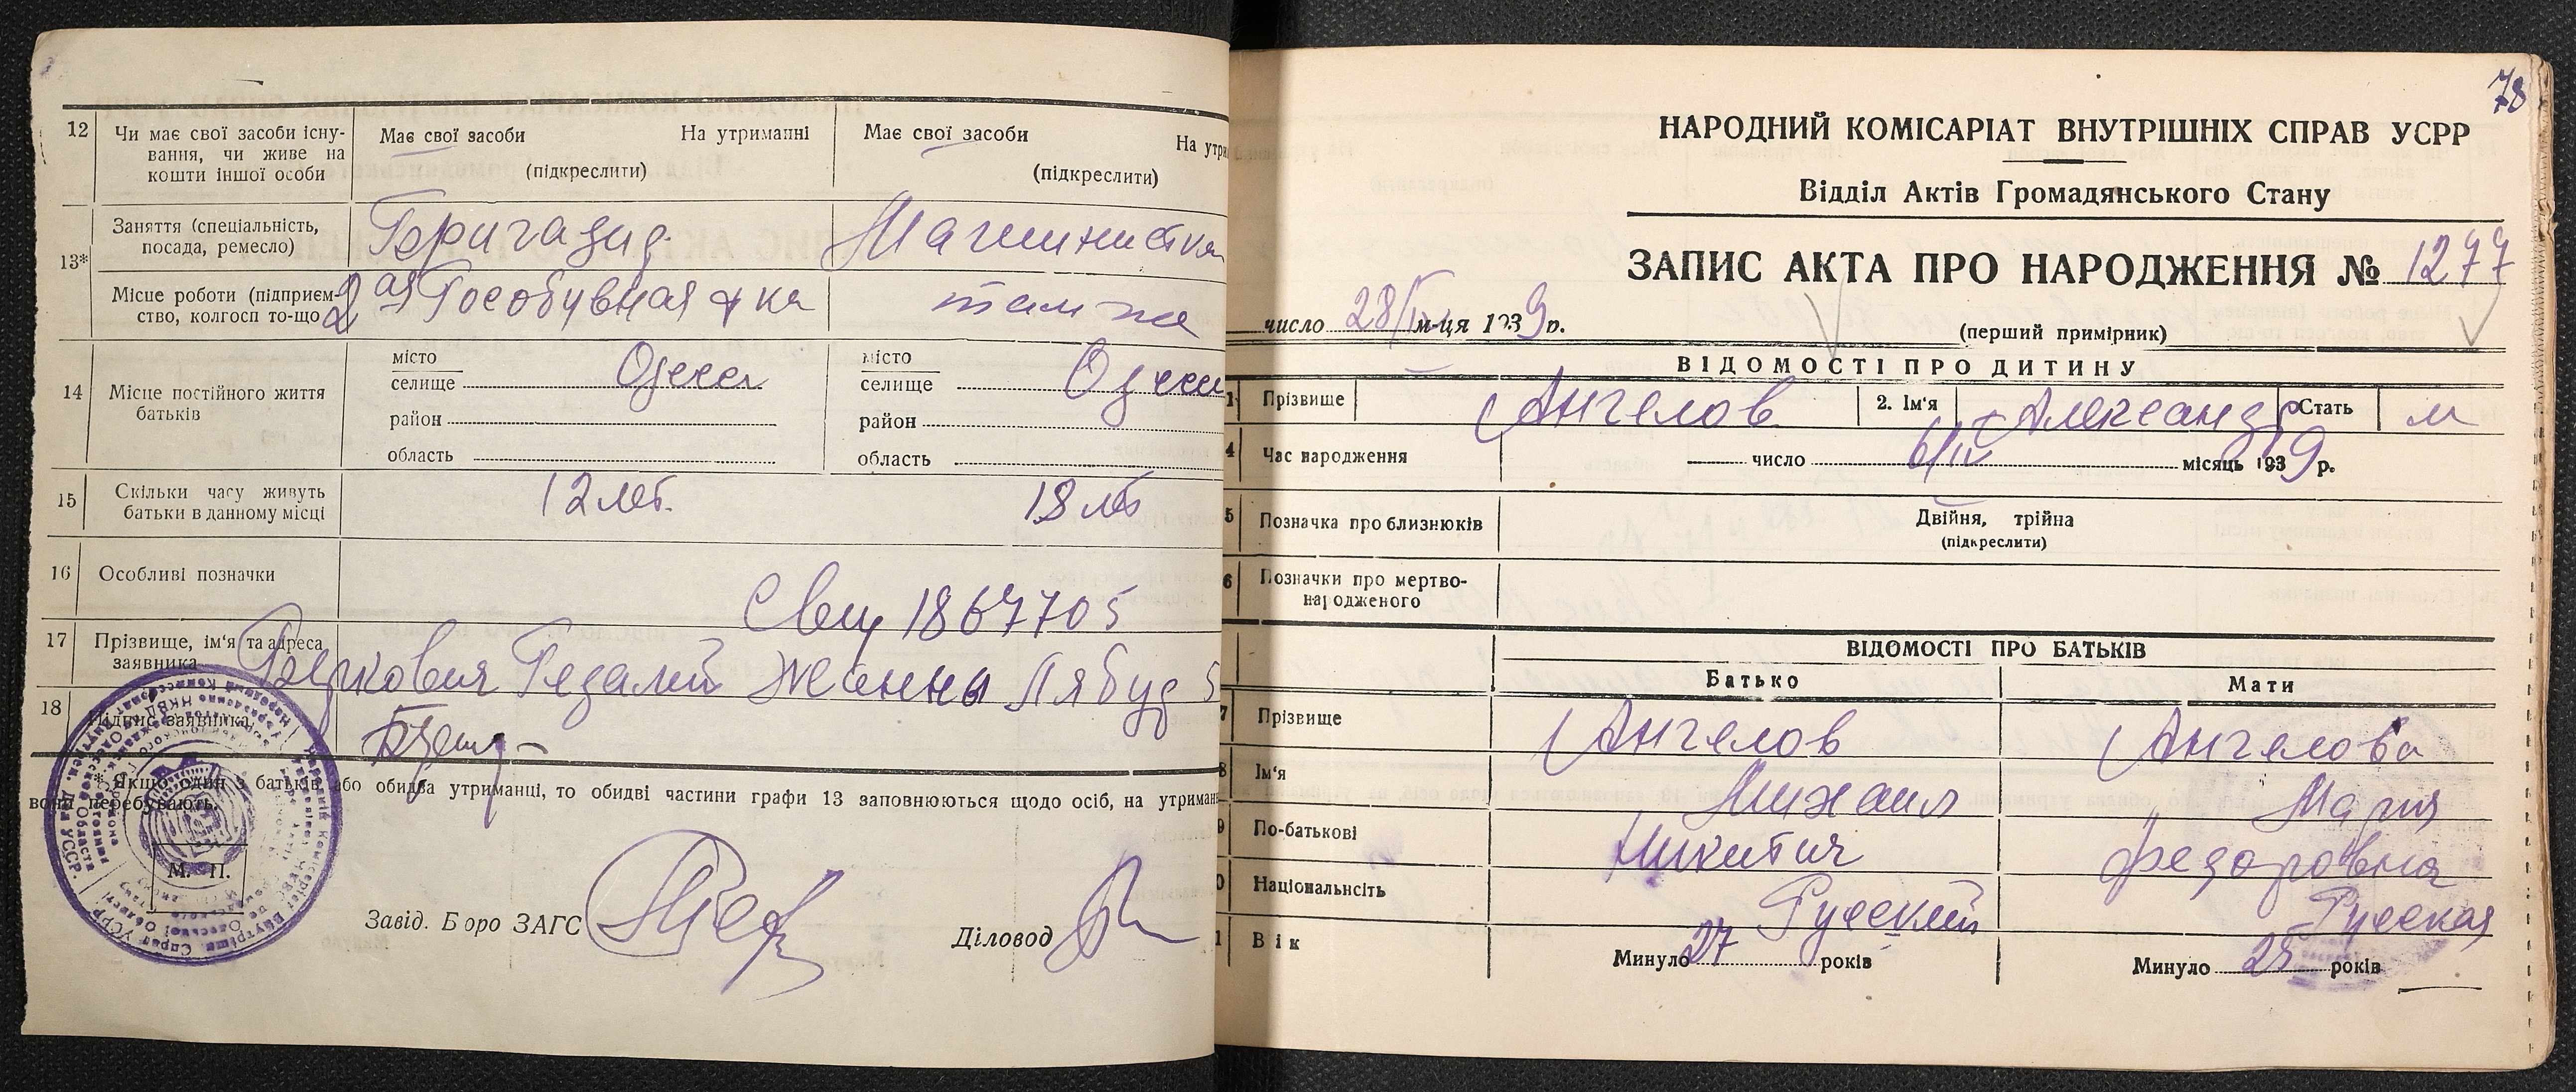 12
Чи має свої засоби існу-
вання, чи живе на
кошти іншої особи
Має свої засоби На утриманні
(підкреслити)
Має свої засоби
На утри
(підкреслити)
13*
Заняття (спеціальність,
посада, ремесло)
Бригадир
Машинистка
Місце роботи (підприєм-
ство, колгосп то-що
2ая Гособувная ф ка
там же
14
Місце постійного життя
батьків
місто
селище Одесса
район
область
місто
селище Одесса
район
область
15
Скільки часу живуть
батьки в данному місці
12 лет.
18 лет
16
Особливі позначки
Свид 1867705
17
Прізвище, ім'я та адреса
заявника
Беркович Жанны Лябурб 5
18
Підпис заявника
* Якщо один з батьків або обидва утриманці, то обидві частини графи 13 заповнюються щодо осіб, на утриман
вони перебувають.
М. П.
Завід. Бюро ЗАГС
Діловод
78
НАРОДНИЙ КОМІСАРІАТ ВНУТРІШНІХ СПРАВ УСРР
Відділ Актів Громадянського Стану
ЗАПИС АКТА ПРО НАРОДЖЕННЯ № 1277
число 28/IV м-ця 1939 р.
(перший примірник)
ВІДОМОСТІ ПРО ДИТИНУ
1 Прізвище Ангелов 2. Ім'я Александр Стать м
4 Час народження число 6/IV місяць 1939 р.
5 Позначка про близнюків
Двійня, трійна
(підкреслити)
6 Позначки про мертво-
народженого
ВІДОМОСТІ ПРО БАТЬКІВ
Батько Мати
7 Прізвище Ангелов Ангелова
8 Ім'я Михаил Мария
9 По-батькові Никитич Федоровна
0 Національнсіть Русский Русская
1 Вік Минуло 27 років Минуло 25 років